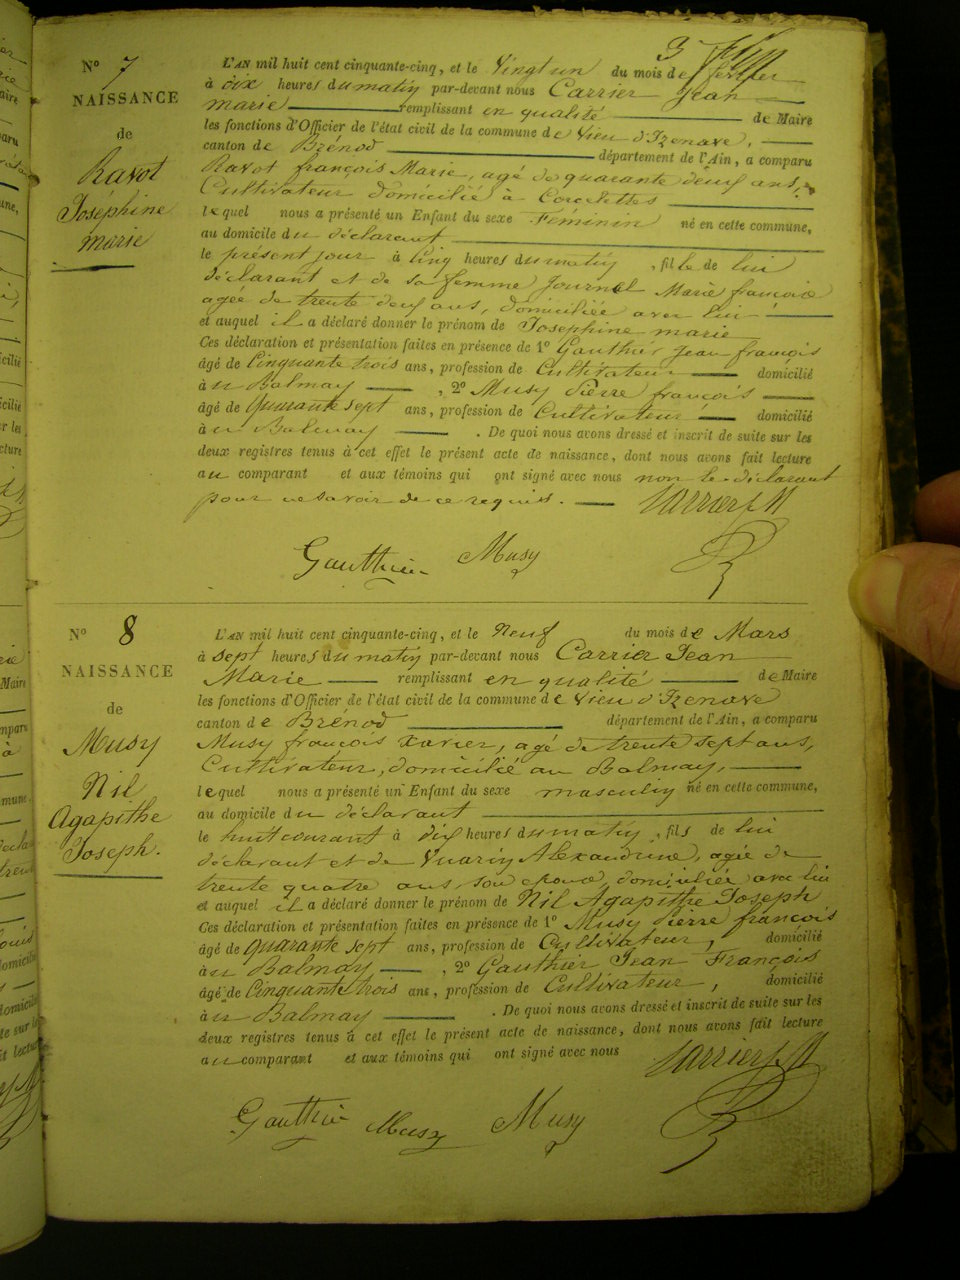 N° 7
NAISSANCE
de
Ravot
Josephine
marie
L'AN mil huit cent cinquante-cinq, et le vingt un du mois de février
à dix heures du matin par-devant nous Carrier Jean
marie remplissant en qualité de Maire
les fonctions d'Officier de l'état civil de la commune de Vieu d'Izenave,
canton de Brénod département de l'Ain, a comparu
Ravot françois Marie, agé de quarante deux ans,
Cultivateur domicilié à Corcelettes
lequel nous a présenté un Enfant du sexe Féminin né en cette commune,
au domicile du déclarant
le présent jour à cinq heures du matin, fille de lui
déclarant et de sa femme Journel Marie françoise
agée de trente deux ans, domiciliée avec lui
et auquel il a déclaré donner le prénom de Josephine marie
Ces déclaration et présentation faites en présence de 1° Gauthier Jean françois
âgé de Cinquante trois ans, profession de Cultivateur domicilié
à u Balmay, 2° Musy Pierre françois
âgé de Quarante sept ans, profession de Cultivateur domicilié
à u Balmay. De quoi nous avons dressé et inscrit de suite sur les
deux registres tenus à cet effet le présent acte de naissance, dont nous avons fait lecture
au comparant et aux témoins qui ont signé avec nous non le déclarant
pour ne savoir de ce requis. Carrier J M
Gauthier Musy
N° 8
NAISSANCE
de
Musy
Nil
Agapithe
Joseph.
L'AN mil huit cent cinquante-cinq, et le Neuf du mois de Mars
à sept heures du matin par-devant nous Carrier Jean
Marie remplissant en qualité de Maire
les fonctions d'Officier de l'état civil de la commune de Vieu d'Izenave
canton de Brénod département de l'Ain, a comparu
Musy françois Xavier, agé de trente sept ans,
Cultivateur, domicilié au Balmay,
lequel nous a présenté un Enfant du sexe masculin né en cette commune,
au domicile du déclarant
le huit courant à dix heures du matin, fils de lui
déclarant et de Vuarin Alexandrine, agée de
trente quatre ans, son épouse, domiciliée avec lui
et auquel il a déclaré donner le prénom de Nil Agapithe Joseph
Ces déclaration et présentation faites en présence de 1° Musy Pierre françois
âgé de Quarante sept ans, profession de Cultivateur, domicilié
à u Balmay, 2° Gauthier Jean François
âgé de Cinquante trois ans, profession de Cultivateur, domicilié
à u Balmay. De quoi nous avons dressé et inscrit de suite sur les
deux registres tenus à cet effet le présent acte de naissance, dont nous avons fait lecture
au comparant et aux témoins qui ont signé avec nous Carrier J M
Gauthier Musy Musy